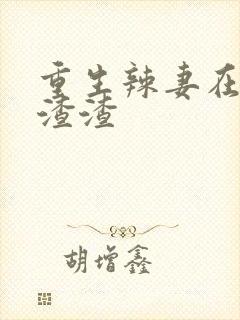 重生辣妻在
渣渣
胡增鑫